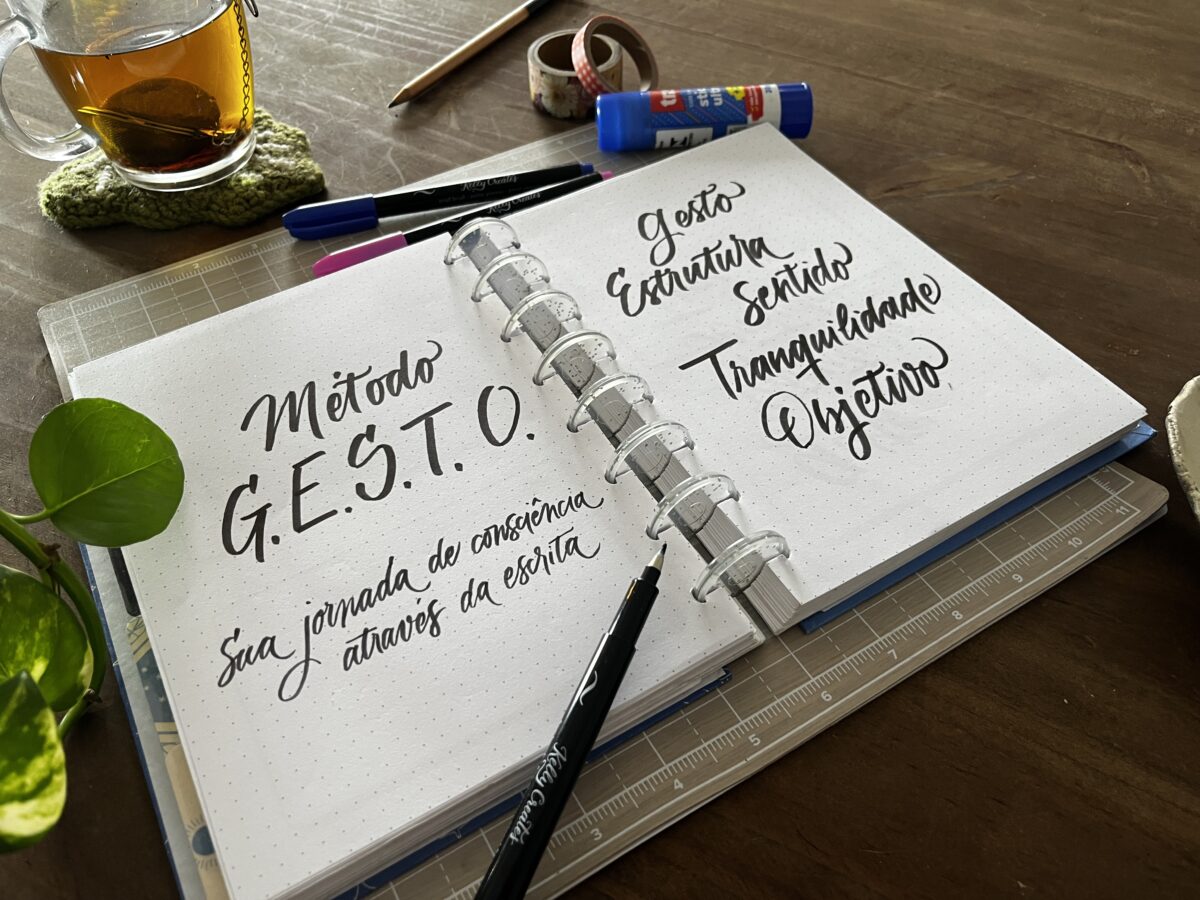 Método
G.E.S.T.O.
Sua jornada de consciência
através da escrita
Gesto
Estrutura
Sentido
Tranquilidade
Objetivo
Kelly Creates
Kelly Creates
Kelly Creates
3
4
5
6
7
8
9
10
11